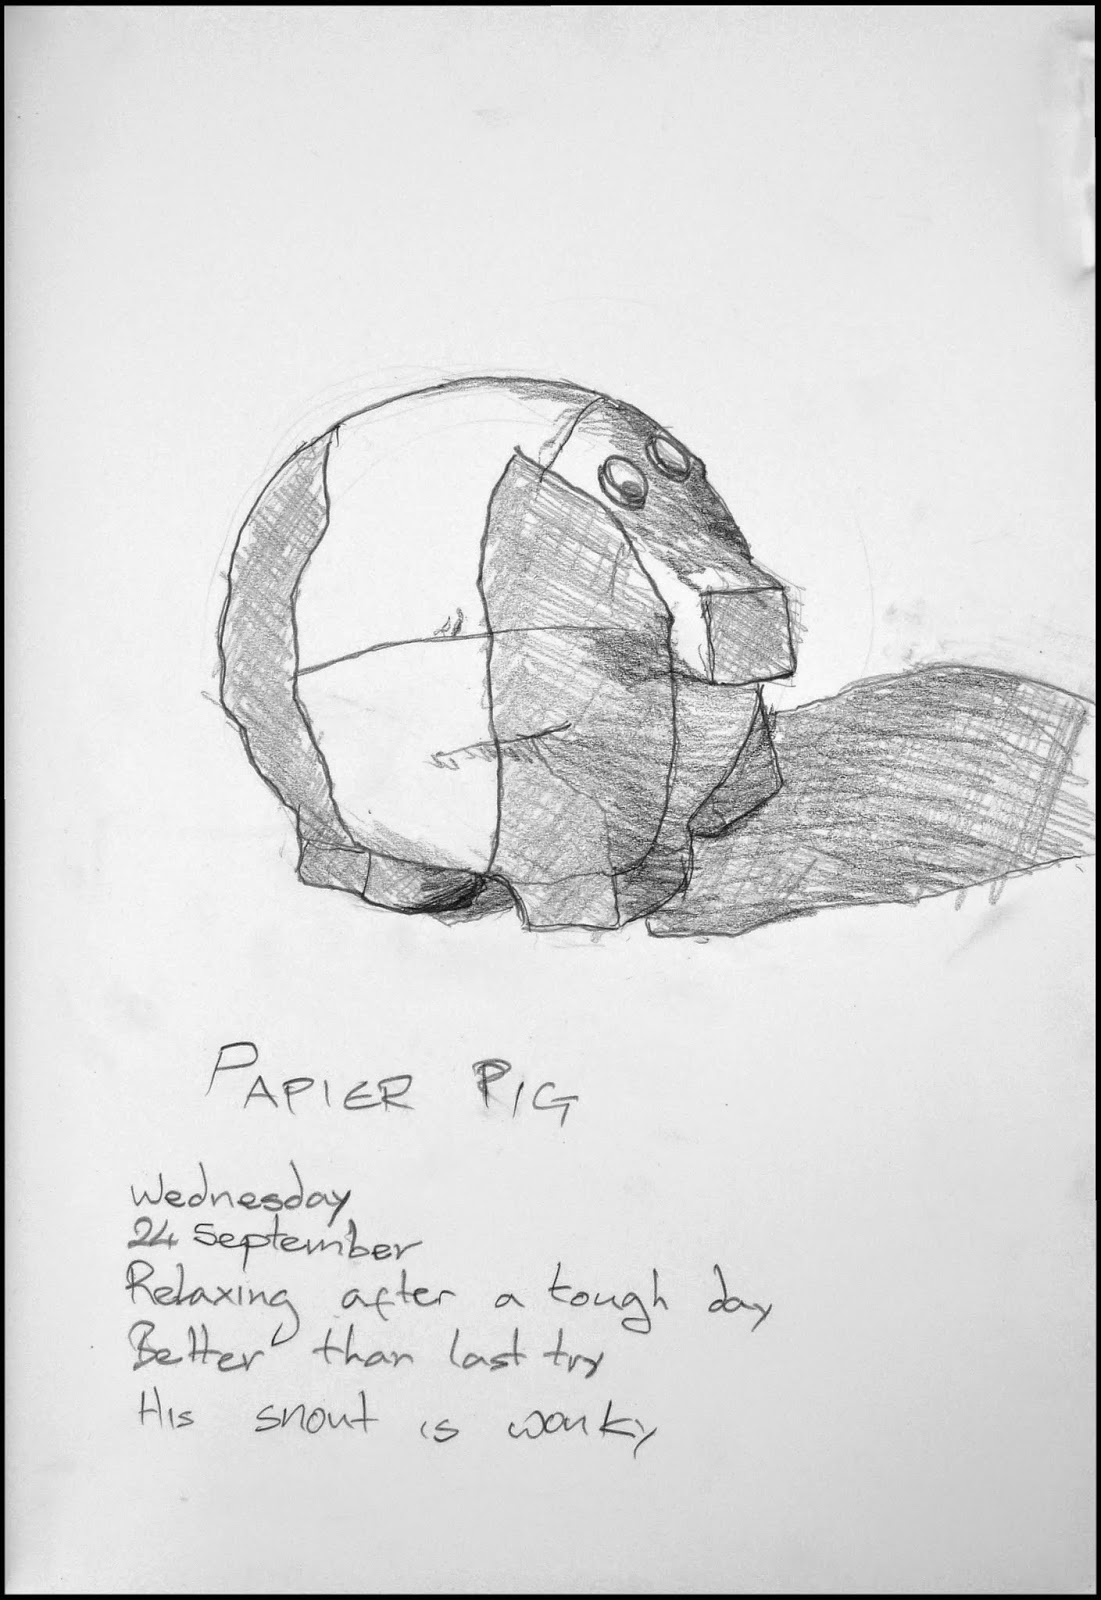 PAPIER PIG
Wednesday
24 September
Relaxing after a tough day
Better than last try
His snout is wonky